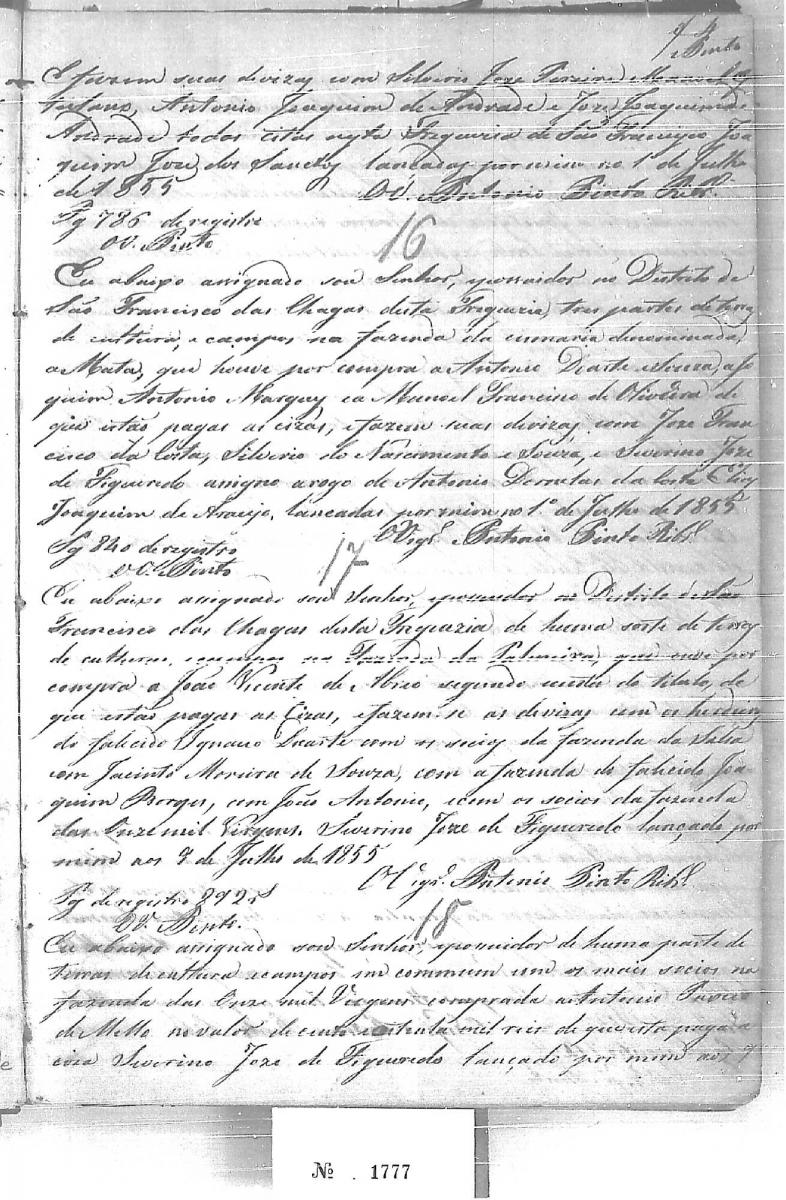 Pinto
E fazem suas divizas com Silverio Joze Pereira
Antonio Joaquim de Andrade e Joze Joaquim de
Andrade todas citas nesta Freguezia de São Francisco Joa
quim Joze dos Santos lançadas por mim no 1º de Julho
de 1855 O V. Antonio Pinto Ribº.
Pg 786 de registro
O V. Pinto
16
Eu abaixo assignado sou Senhor, e possuidor no Distrito de
São Francisco das Chagas desta Freguezia tres partes de terras
de cultura, e campos na fazenda da denominada,
a Mata, que houve por compra a Antonio Duarte e Souza, a Jo
quim Antonio Marques e a Manoel Francisco de Oliveira de
que estão pagas as cizas, e fazem suas divizas com Joze Fran
cisco da Costa, Silverio do Nascimento e Souza, e Severino Joze
de Figueredo assigno a rogo de Antonio Dornelas da Costa
Joaquim de Araujo, lancadas por mim no 1º de Julho de 1855
O Vigrº Antonio Pinto Ribº.
Pg 840 de registro
O V. Pinto
17
Eu abaixo assignado sou Senhor, e possuidor no Distrito de São
Francisco das Chagas desta Freguezia de huma sorte de terras
de culturas, e campos na Fazenda da Palmeira, que ouve por
compra a João Vicente de Abreo segundo consta do titulo, de
que estão pagas as Cizas, e fazem-se as divizas com os herdeiros
do falicido Ignacio Duarte com os socios da fazenda da
com Jacinto Moreira de Souza, com a fazenda do falicido Joa
quim Borges, com João Antonio, e com os socios da fazenda
das Onze mil Virgens. Severino Joze de Figueredo lançado por
mim aos 7 de Julho de 1855
O Vigrº. Antonio Pinto Ribº.
Pg de registro 892 rs
O V. Pinto.
18
Eu abaixo assignado sou Senhor, e possuidor de huma parte de
terras de cultura e campos em commum com os mais socios na
fazenda das Onze mil Virgens comprada a Antonio
de Mello no valor de cento e mil reis de que esta paga a
ciza Severino Joze de Figueredo lançado por mim aos 7
Nº . 1777